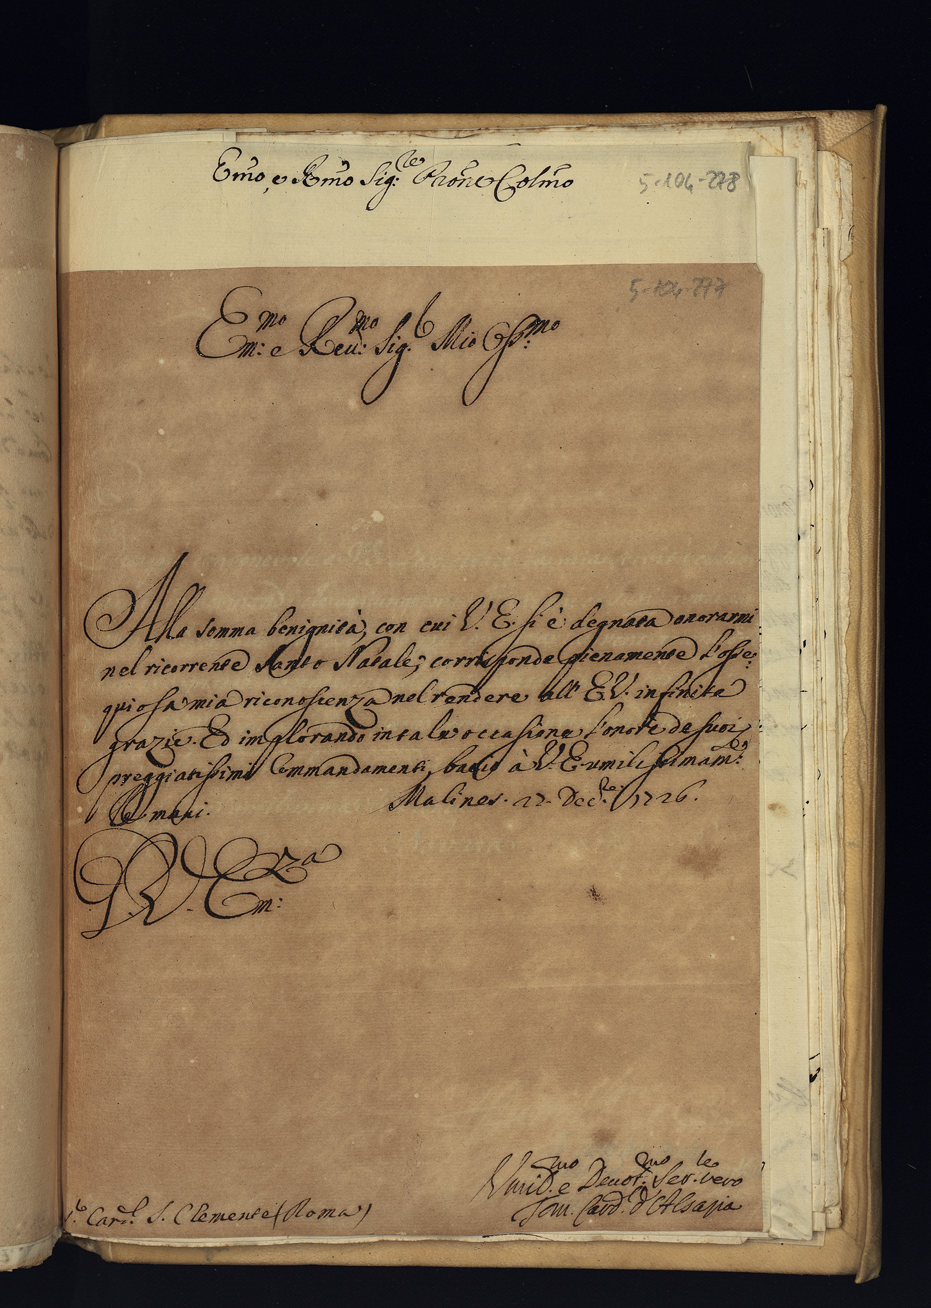 Em̃o, e Rm̃o Sig:re Prõne Colm̃o
5-104-278
5-104-277
Em:mo e Reu:mo Sig.r Mio Oss:mo
Alla somma benignità, con cui V. E. si è degnata onorarmi
nel ricorrente Santo Natale, corrisponde pienamente l'osse-
quiosa mia riconoscenza nel rendere all' E.V. infinite
grazie. Ed implorando in tale occasione l'onore de suoi
preggiatissimi Commandamenti, bacio à V. E. umilissimam:te
le mani. Malines. 27. Dec.re 1726.
D. V. Em:za
Vmil.mo e Deuot.mo Ser.re vero
Tom. Card. d'Alsazia
S.r Card. S. Clemente (Roma)